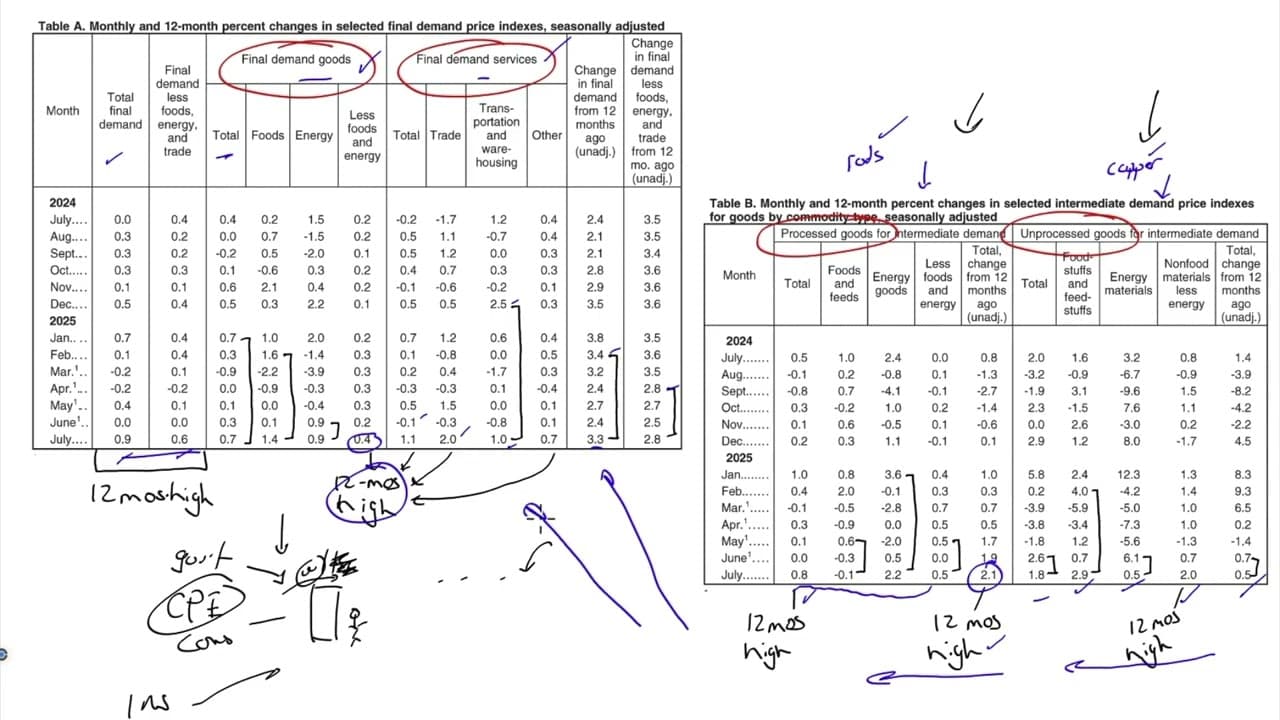 Table A. Monthly and 12-month percent changes in selected final demand price indexes, seasonally adjusted
Month
Total final demand
Final demand less foods, energy, and trade
Final demand goods
Total
Foods
Energy
Less foods and energy
Final demand services
Total
Trade
Trans- portation and ware- housing
Other
Change in final demand from 12 months ago (unadj.)
Change in final demand less foods, energy, and trade from 12 mo. ago (unadj.)
2024
July.... 0.0 0.4 0.4 0.2 1.5 0.2 -0.2 -1.7 1.2 0.4 2.4 3.5
Aug.... 0.3 0.2 0.0 0.7 -1.5 0.2 0.5 1.1 -0.7 0.4 2.1 3.5
Sept... 0.3 0.2 -0.2 0.5 -2.0 0.1 0.5 1.2 0.0 0.3 2.1 3.4
Oct..... 0.3 0.3 0.1 -0.6 0.3 0.2 0.4 0.7 0.3 0.3 2.8 3.6
Nov.... 0.1 0.1 0.6 2.1 0.4 0.2 -0.1 -0.6 -0.2 0.1 2.9 3.6
Dec.... 0.5 0.4 0.5 0.3 2.2 0.1 0.5 0.5 2.5 0.3 3.5 3.6
2025
Jan.... 0.7 0.4 0.7 1.0 2.0 0.2 0.7 1.2 0.6 0.4 3.8 3.5
Feb.... 0.1 0.4 0.3 1.6 -1.4 0.3 0.1 -0.8 0.0 0.5 3.4 3.6
Mar.¹.. -0.2 0.1 -0.9 -2.2 -3.9 0.3 0.2 0.4 -1.7 0.3 3.2 3.5
Apr.¹... -0.2 -0.2 0.0 -0.9 -0.3 0.3 -0.3 -0.3 0.1 -0.4 2.4 2.8
May¹.. 0.4 0.1 0.1 0.0 -0.4 0.3 0.5 1.5 0.0 0.1 2.7 2.7
June¹.. 0.0 0.0 0.3 0.1 0.9 0.2 -0.1 -0.3 -0.8 0.1 2.4 2.5
July.... 0.9 0.6 0.7 1.4 0.9 0.4 1.1 2.0 1.0 0.7 3.3 2.8
12 mos high
12-mos
high
govt
CPI
cons
rods
copper
Table B. Monthly and 12-month percent changes in selected intermediate demand price indexes
for goods by commodity type, seasonally adjusted
Month
Processed goods for intermediate demand
Total
Foods and feeds
Energy goods
Less foods and energy
Total, change from 12 months ago (unadj.)
Unprocessed goods for intermediate demand
Total
Food- stuffs and feed- stuffs
Energy materials
Nonfood materials less energy
Total, change from 12 months ago (unadj.)
2024
July....... 0.5 1.0 2.4 0.0 0.8 2.0 1.6 3.2 0.8 1.4
Aug....... -0.1 0.2 -0.8 0.1 -1.3 -3.2 -0.9 -6.7 -0.9 -3.9
Sept...... -0.8 0.7 -4.1 -0.1 -2.7 -1.9 3.1 -9.6 1.5 -8.2
Oct........ 0.3 -0.2 1.0 0.2 -1.4 2.3 -1.5 7.6 1.1 -4.2
Nov....... 0.1 0.6 -0.5 0.1 -0.6 0.0 2.6 -3.0 0.2 -2.2
Dec....... 0.2 0.3 1.1 -0.1 0.1 2.9 1.2 8.0 -1.7 4.5
2025
Jan........ 1.0 0.8 3.6 0.4 1.0 5.8 2.4 12.3 1.3 8.3
Feb....... 0.4 2.0 -0.1 0.3 0.3 0.2 4.0 -4.2 1.4 9.3
Mar.¹..... -0.1 -0.5 -2.8 0.7 0.7 -3.9 -5.9 -5.0 1.0 6.5
Apr.¹..... 0.3 -0.9 0.0 0.5 0.5 -3.8 -3.4 -7.3 1.0 0.2
May¹..... 0.1 0.6 -2.0 0.5 1.7 -1.8 1.2 -5.6 -1.3 -1.4
June¹.... 0.0 -0.3 0.5 0.0 1.9 2.6 0.7 6.1 0.7 0.7
July....... 0.8 -0.1 2.2 0.5 2.1 1.8 2.9 0.5 2.0 0.5
12 mos
high
12 mos
high
12 mos
high